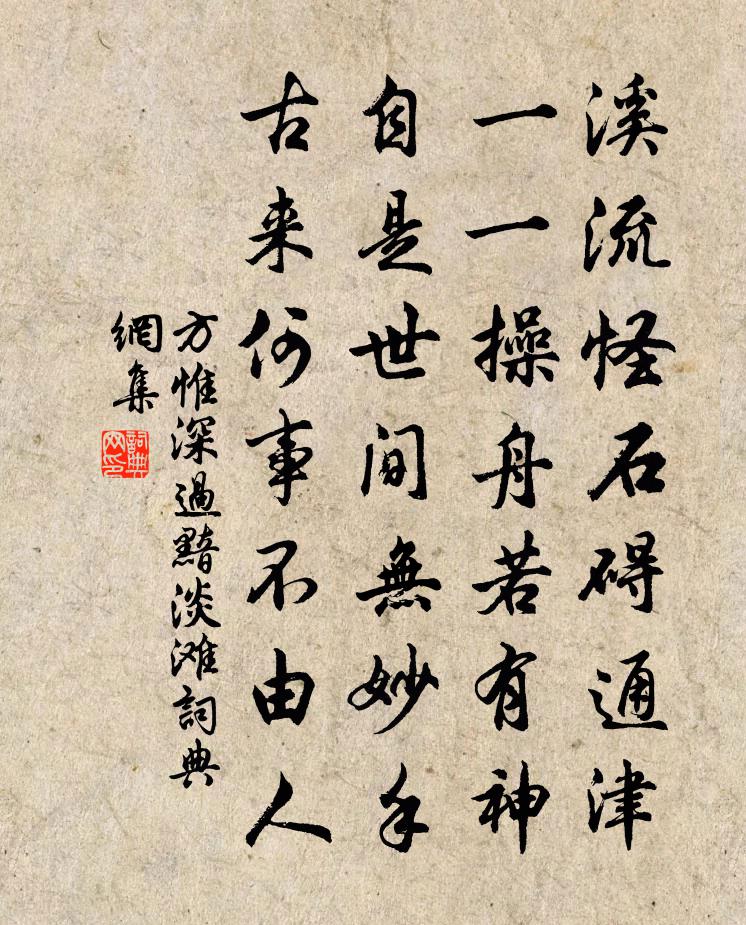 溪流怪石碍通津
一一操舟若有神
自是世间無妙手
古来何事不由人
方惟深過黯淡滩詞典
網集
詞典
网印